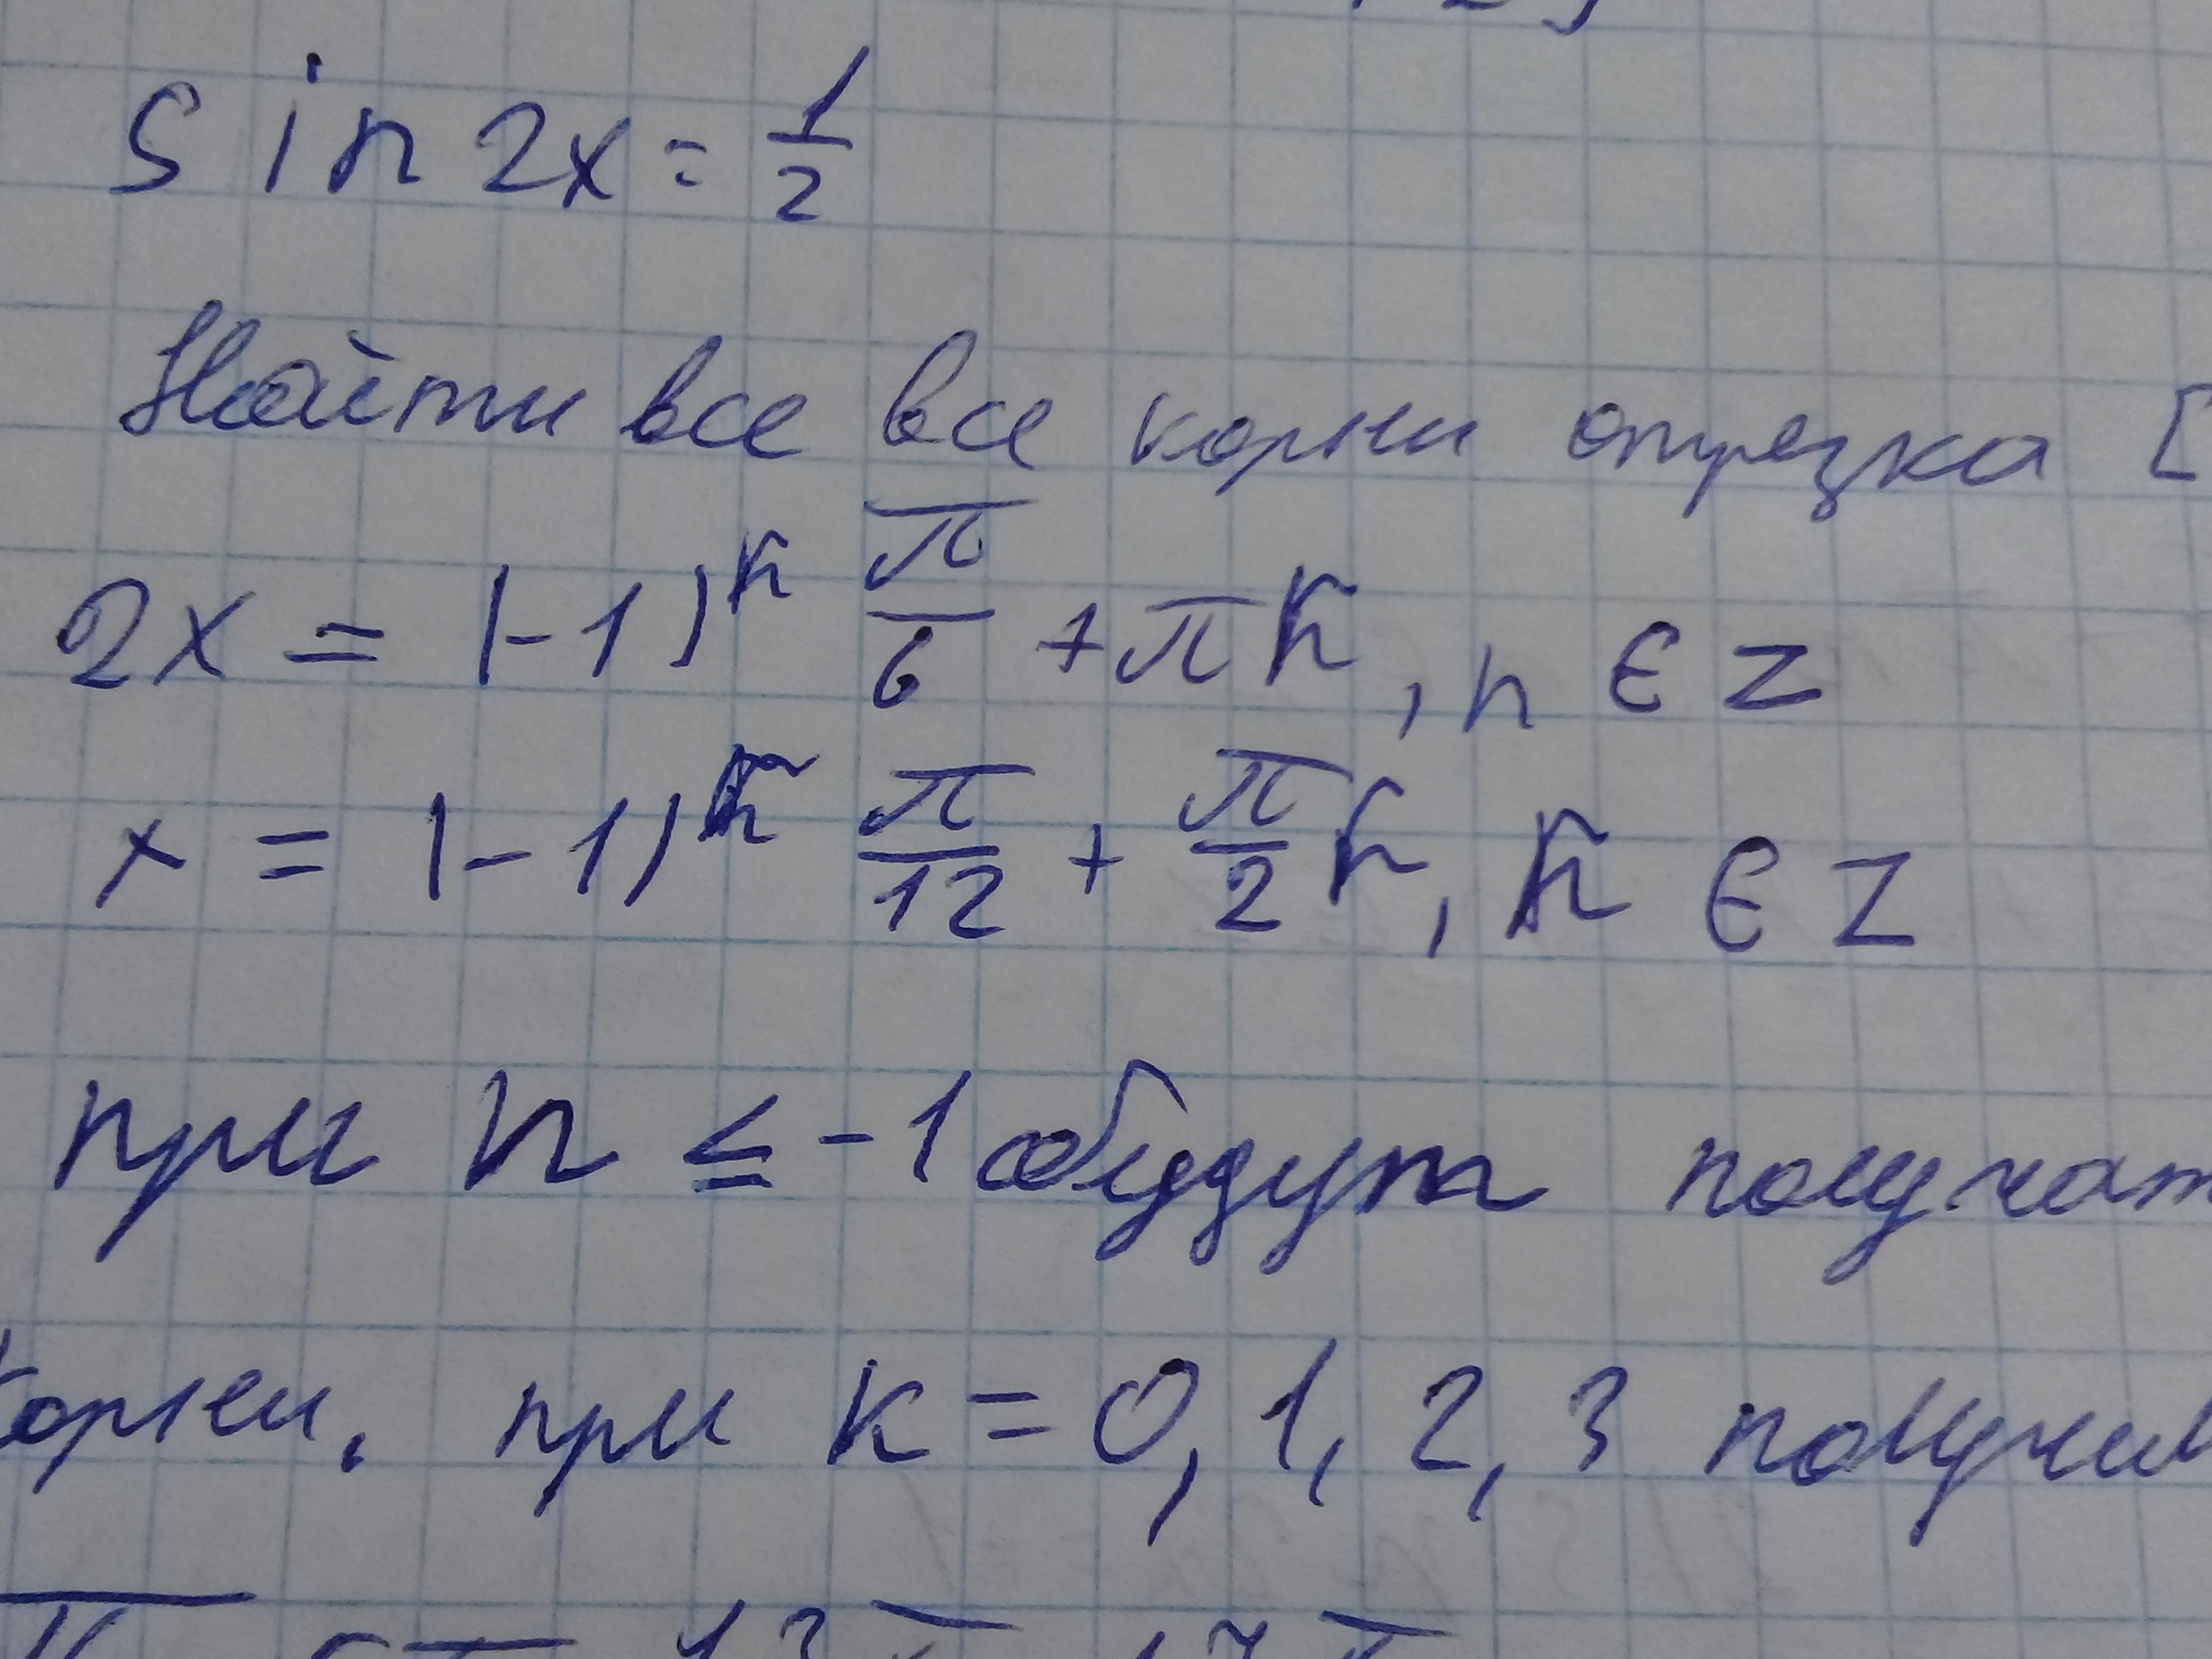 sin 2x = 1/2
Найти все все корни отрезка [
2x = (-1)^k π/6 + πk, n ∈ Z
x = (-1)^k π/12 + π/2 k, k ∈ Z
при n ≤ -1 будут получат
корни. при k = 0, 1, 2, 3 получим
π 5π 13π 17π